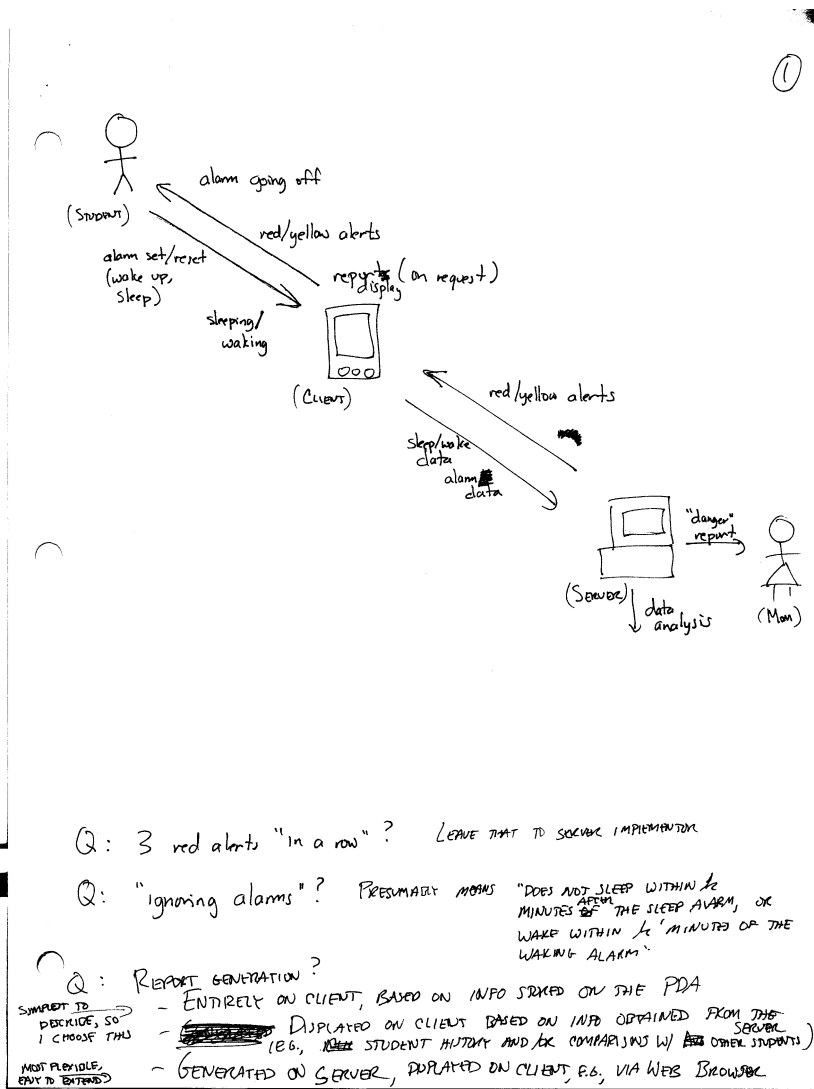 1
alarm going off
(STUDENT)
red/yellow alerts
alarm set/reset
(wake up,
sleep)
report (on request)
display
sleeping/
waking
(CLIENT)
red/yellow alerts
sleep/wake
data
alarm
data
"danger"
report
(SERVER)
data
analysis
(MOM)
Q: 3 red alerts "in a row"? LEAVE THAT TO SERVER IMPLEMENTOR
Q: "ignoring alarms"? PRESUMABLY MEANS "DOES NOT SLEEP WITHIN k
MINUTES AFTER THE SLEEP ALARM, OR
WAKE WITHIN k' MINUTES OF THE
WAKING ALARM"
Q: REPORT GENERATION?
- ENTIRELY ON CLIENT, BASED ON INFO STORED ON THE PDA
SIMPLEST TO
DESCRIBE, SO
I CHOOSE THIS
- DISPLAYED ON CLIENT BASED ON INFO OBTAINED FROM THE
SERVER
(E.G., STUDENT HISTORY AND/OR COMPARISONS W/ OTHER STUDENTS)
MOST FLEXIBLE,
EASY TO EXTEND
- GENERATED ON SERVER, DISPLAYED ON CLIENT, E.G. VIA WEB BROWSER